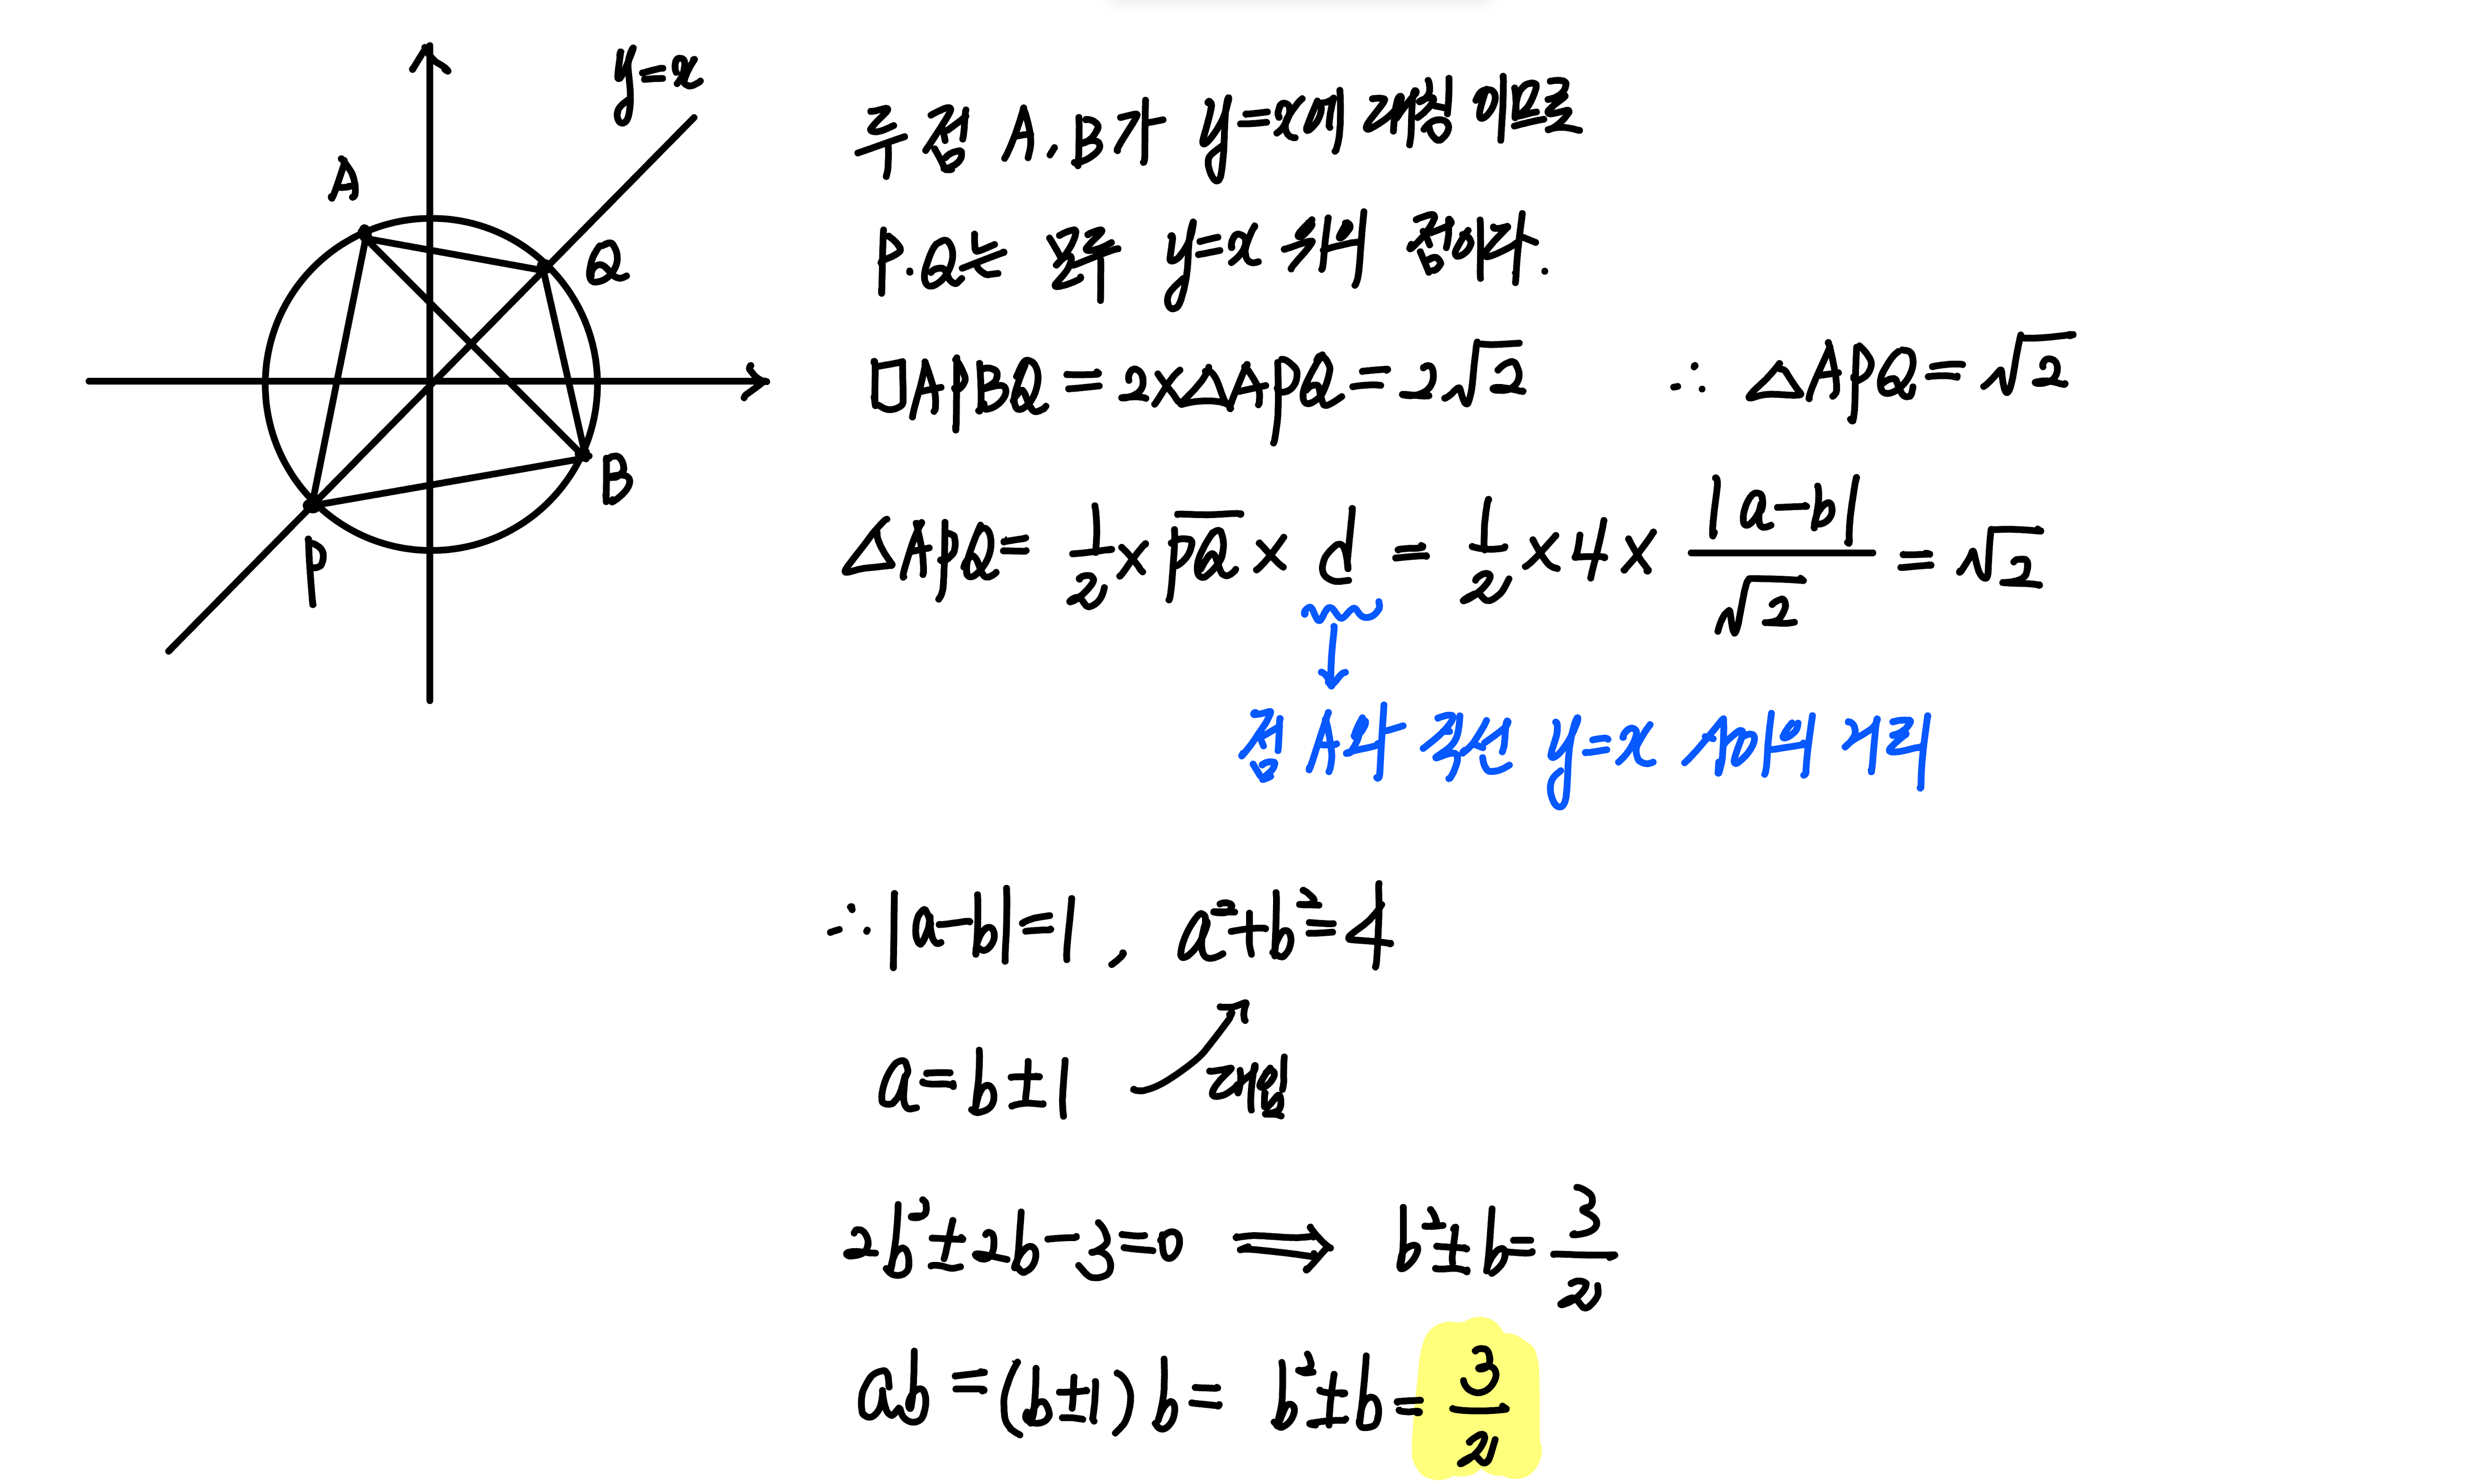 y=x
A
Q
B
P
두 점 A, B가 y=x에 대칭 이므로
P.Q는 모두 y=x 위의 점이다.
□APBQ = 2×△APQ = 2√2 ∴ △APQ = √2
△APQ = 1/2 × PQ × d = 1/2 × 4 × |a-b|/√2 = √2
점 A와 직선 y=x 사이의 거리
∴ |a-b|=1, a²+b²=4
a=b±1 대입
2b²±2b-3=0 ⟹ b²±b=3/2
ab=(b±1)b= b²±b= 3/2